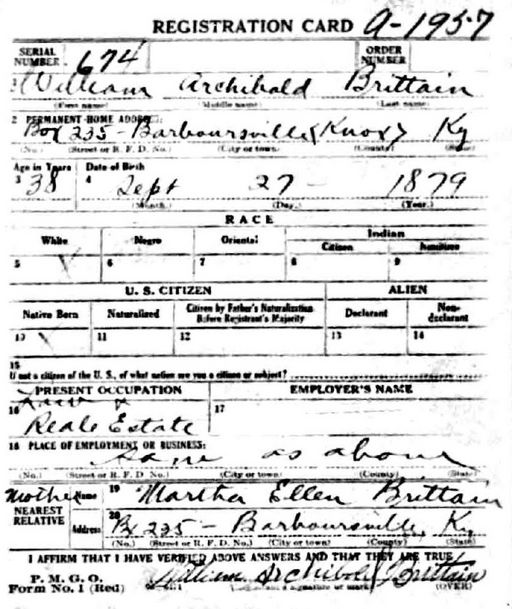 REGISTRATION CARD A-1957
SERIAL NUMBER 674 ORDER NUMBER
1 William Archibald Brittain
(First name) (Middle name) (Last name)
2 PERMANENT HOME ADDRESS:
Box 235 - Barboursville (Knox) Ky
(No.) (Street or R. F. D. No.) (City or town) (County) (State)
Age in Years Date of Birth
3 38 4 Sept 27 - 1879
(Month.) (Day.) (Year.)
RACE
White Negro Oriental Indian
Citizen Noncitizen
5 6 7 8 9
U. S. CITIZEN ALIEN
Native Born Naturalized Citizen by Father's Naturalization Before Registrant's Majority Declarant Non-declarant
10 11 12 13 14
15
If not a citizen of the U. S., of what nation are you a citizen or subject?
PRESENT OCCUPATION EMPLOYER'S NAME
16 Law & 17
Reale Estate
18 PLACE OF EMPLOYMENT OR BUSINESS:
Same as above
(No.) (Street or R. F. D. No.) (City or town) (County) (State)
Mother Name 19 Martha Ellen Brittain
NEAREST RELATIVE
Address 20 Bx 235 - Barboursville, Ky
(No.) (Street or R. F. D. No.) (City or town) (County) (State)
I AFFIRM THAT I HAVE VERIFIED ABOVE ANSWERS AND THAT THEY ARE TRUE
P. M. G. O.
Form No. 1 (Red) William Archibald Brittain
(Registrant's signature or mark) (OVER)